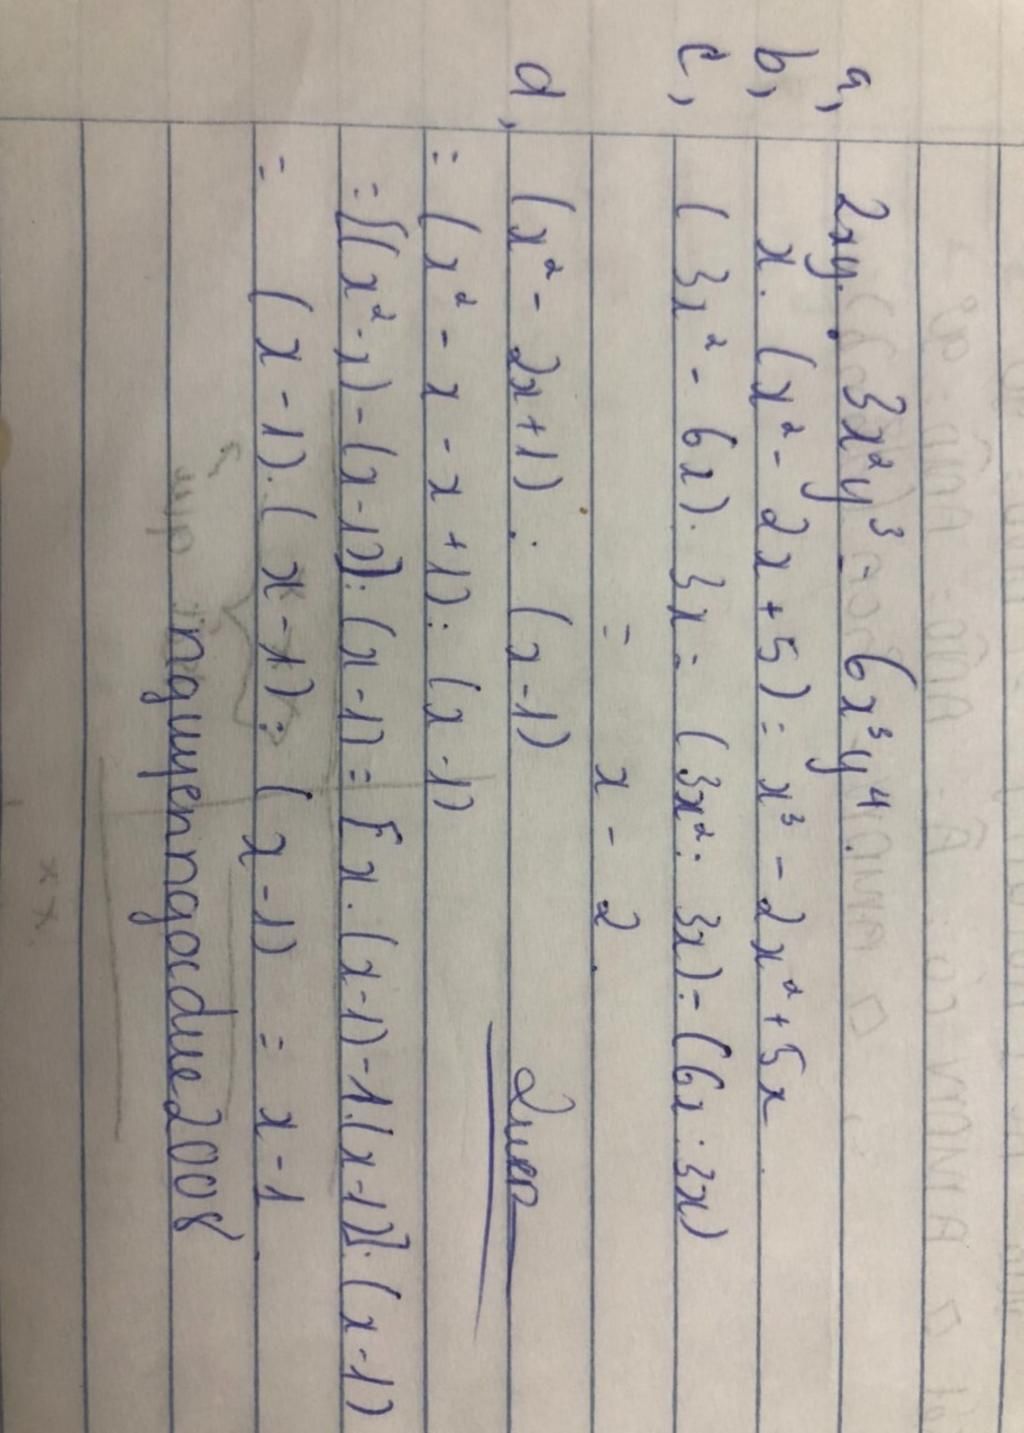 a, 2xy. 3x²y³ = 6x³y⁴.
b, x. (x² - 2x + 5) = x³ - 2x² + 5x
c, (3x² - 6x): 3x = (3x² : 3x) - (6x : 3x)
= x - 2.
d, (x² - 2x + 1) : (x - 1)
= (x² - x - x + 1) : (x - 1)
= [(x² - x) - (x - 1)] : (x - 1) = [x. (x - 1) - 1. (x - 1)] : (x - 1)
= (x - 1). (x - 1) : (x - 1) = x - 1
nguyenngocdue2008